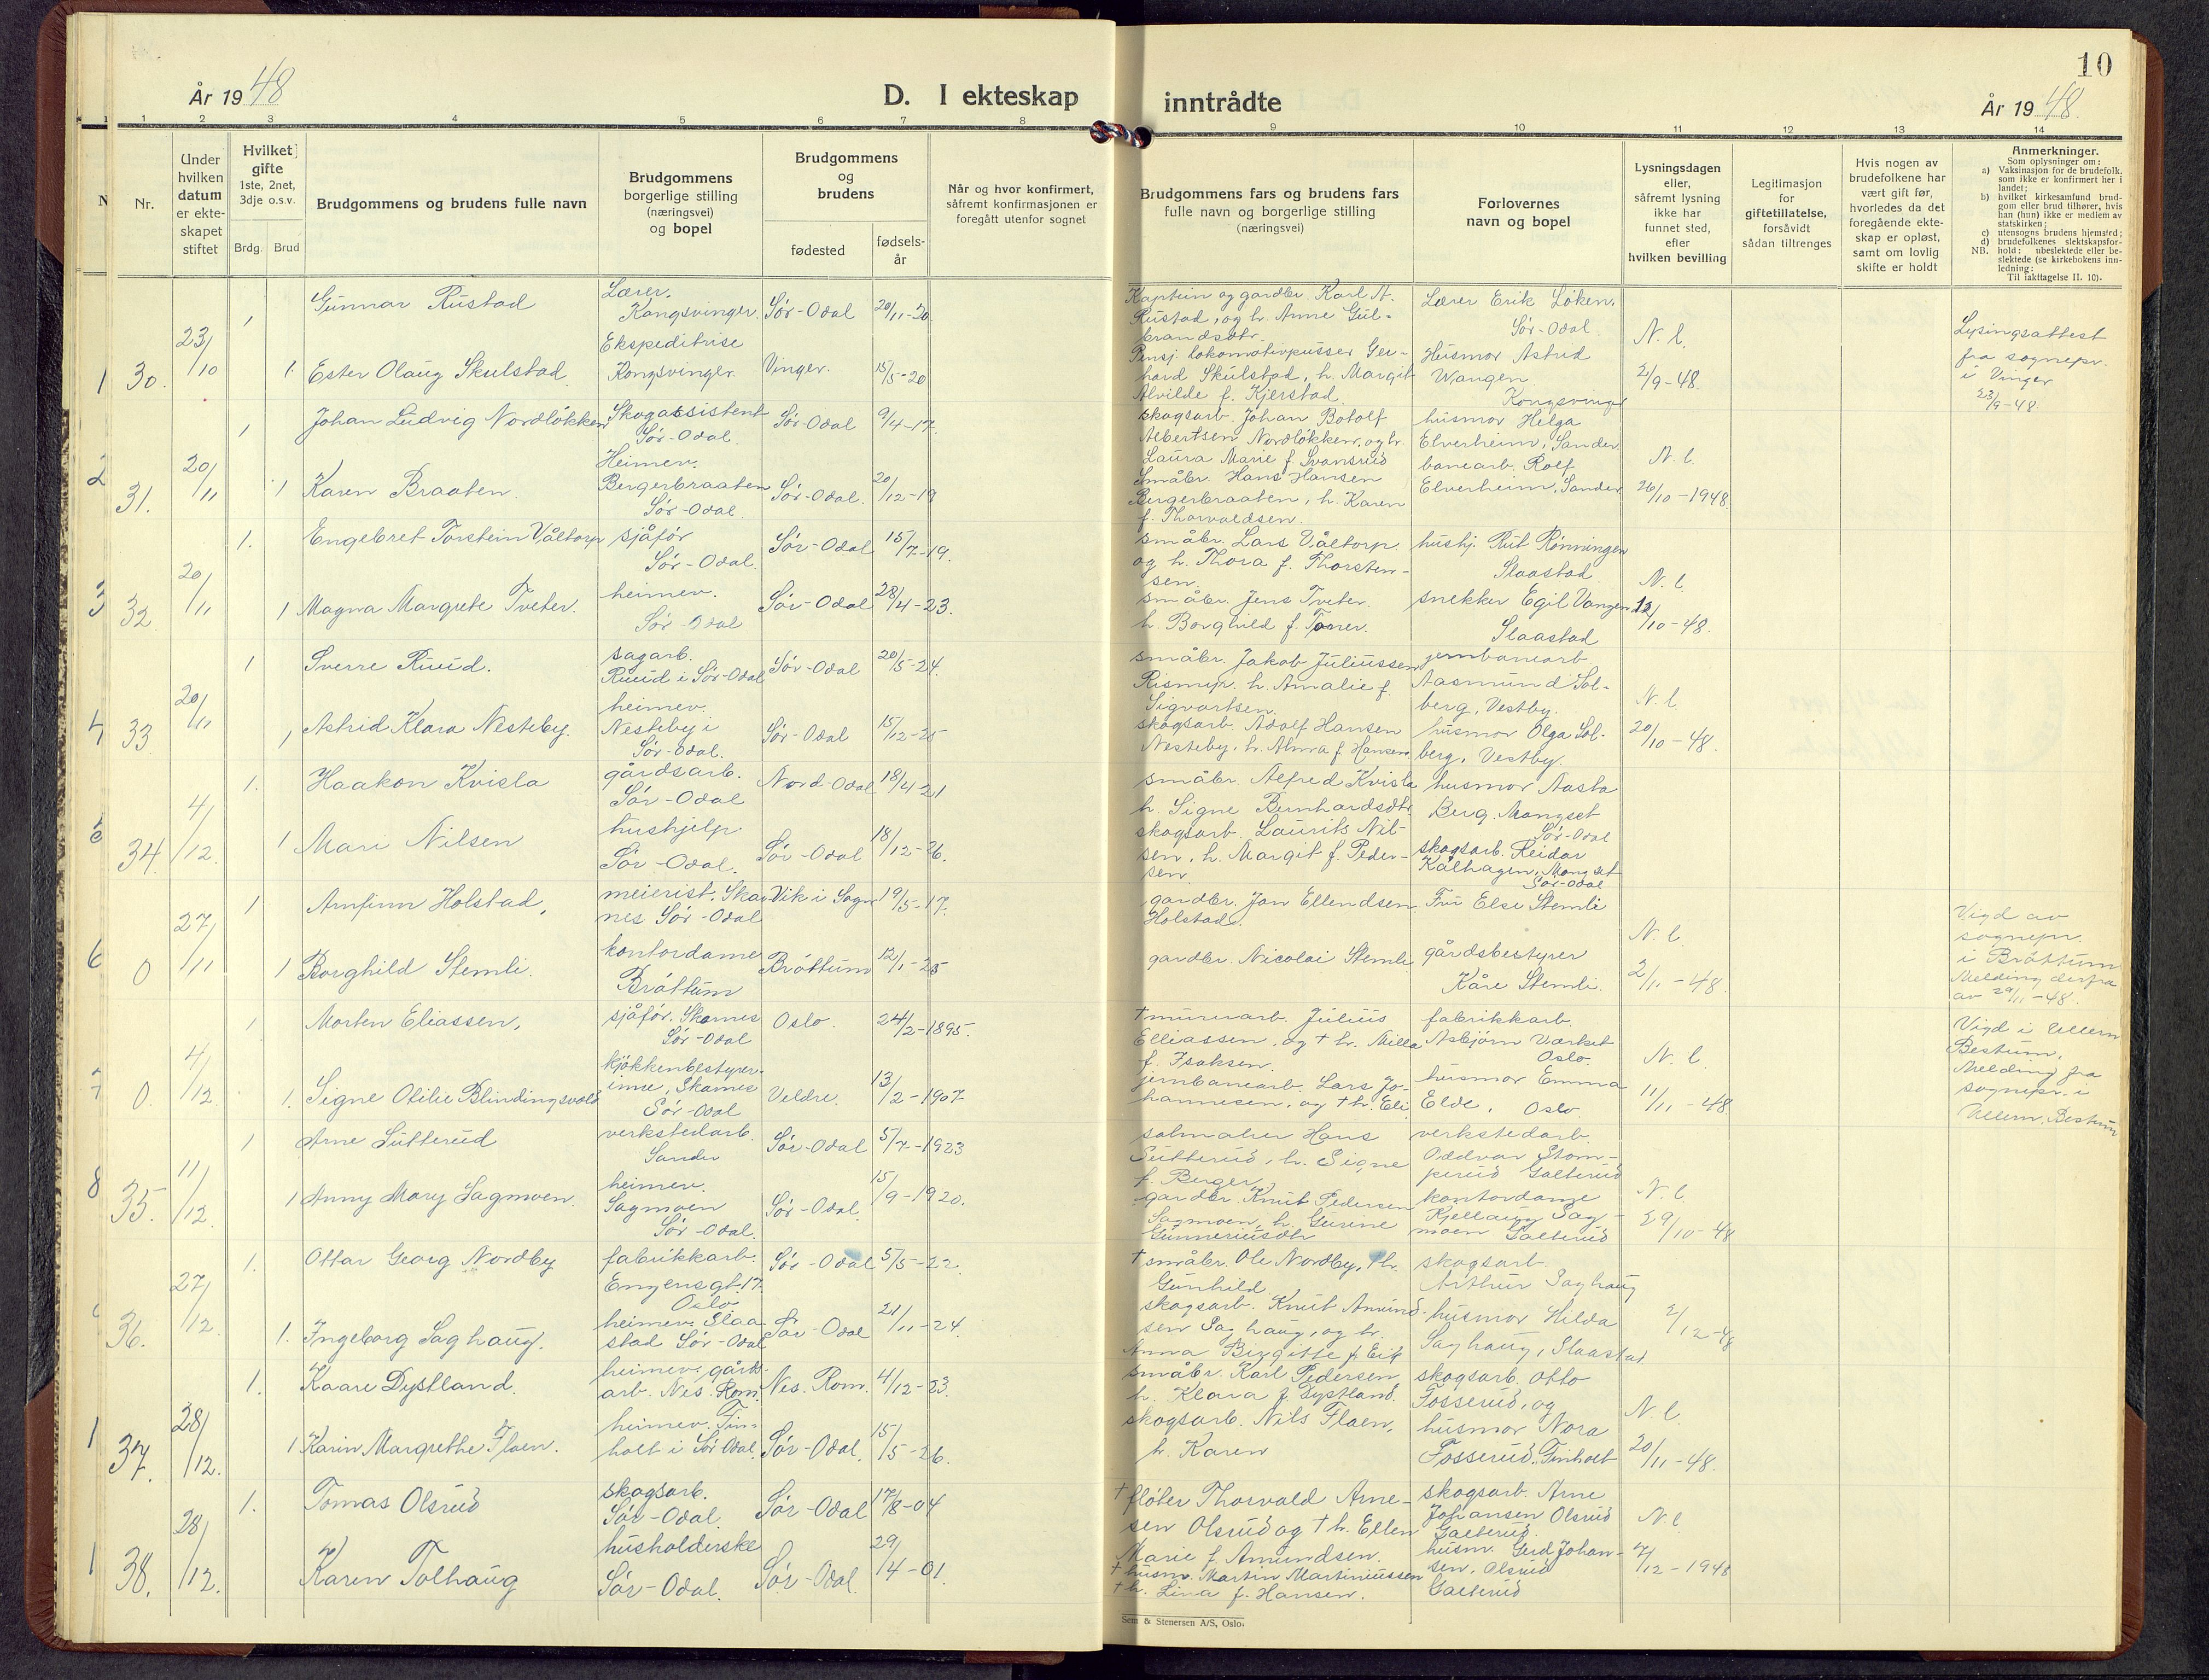 År 1948
D. I ekteskap inntrådte
År 1948.
10
1 2 3 4 5 6 7 8 9 10 11 12 13 14
Nr.
Under hvilken datum er ekteskapet stiftet
Hvilket gifte 1ste, 2net, 3dje o.s.v.
Brdg. Brud
Brudgommens og brudens fulle navn
Brudgommens borgerlige stilling (næringsvei) og bopel
Brudgommens og brudens
fødested
fødselsår
Når og hvor konfirmert, såfremt konfirmasjonen er foregått utenfor sognet
Brudgommens fars og brudens fars fulle navn og borgerlige stilling (næringsvei)
Forlovernes navn og bopel
Lysningsdagen eller, såfremt lysning ikke har funnet sted, efter hvilken bevilling
Legitimasjon for giftetillatelse, forsåvidt sådan tiltrenges
Hvis nogen av brudefolkene har vært gift før, hvorledes da det foregående ekteskap er opløst, samt om lovlig skifte er holdt
Anmerkninger.
Som oplysninger om:
a) Vaksinasjon for de brudefolk, som ikke er konfirmert her i landet;
b) hvilket kirkesamfund brudgom eller brud tilhører, hvis han (hun) ikke er medlem av statskirken;
c) utensogns brudens hjemsted;
d) brudefolkenes slektskapsforhold: ubeslektede eller beslektede (se kirkebokens innledning:
NB.
Til iakttagelse II. 10).
30. 23/10 1 Gunnar Rustad Lærer. Kongsvinger. Sør-Odal 20/11-20.
Kaptein og gardbr. Karl A. Rustad, og h. Anne Gulbrandsdtr. Lærer Erik Løken, Sør-Odal. N. l.
1 Ester Olaug Skulstad Ekspeditrise Kongsvinger Vinger. 15/5-20
Pensj. lokomotivpusser Gerhard Skulstad, h. Margit Alvilde f. Kjerstad Husmor Astrid Wangen Kongsvinger 2/9-48.
Lysingsattest fra sognepr. i Vinger 23/9-48.
31. 20/11 1 Johan Ludvig Nordløkken Skogassistent Sør-Odal. Sør-Odal 9/4-17.
skogsarb. Johan Botolf Albertsen Nordløkken, og h. Laura Marie f. Svansrud husmor Helga Elverheim, Sander N. l.
1 Karen Braaten. Heimev. Bergerbraaten Sør-Odal. Sør-Odal. 20/12-19
Småbr. Hans Hansen Bergerbraaten, h. Karen f. Thorvaldsen. banearb. Rolf Elverheim, Sander 26/10-1948.
32 20/11 1. Engebret Torstein Våltorp sjåfør Sør-Odal. Sør-Odal 15/7-19.
småbr. Lars Våltorp og h. Thora f. Thorstensen. hushj. Rut Rønningen Slaastad. N. l.
1 Magna Margrete Tveter. heimev. Sør-Odal Sør-Odal 28/4-23.
småbr. Jens Tveter. h. Borghild f. Toner. snekker Egil Vangen Slaastad 12/10-48.
33. 20/11 1 Sverre Ruud. sagarb. Ruud i Sør-Odal Sør-Odal 20/5-24.
småbr. Jakob Juliussen h. Amalie f. Sigvartsen. jernbanearb Aasmund Solberg, Vestby. N. l.
1 Astrid Klara Nesteby. heimev. Nesteby i Sør-Odal. Sør-Odal 15/12-25
skogsarb. Adolf Hansen Nesteby, h. Alma f. Hansen. husmor Olga Solberg, Vestby. 20/10-48.
34. 4/12. 1. Haakon Kvisla gårdsarb. Sør-Odal Nord-Odal 18/4-21
småbr. Alfred Kvisla h. Signe Bernhardsdtr. husmor Aasta Berg. Mangset Sør-Odal
1 Mari Nilsen hushjelp. Sør-Odal. Sør-Odal 18/12-26.
skogsarb. Laurits Nilsen, h. Margit f. Pedersen skogsarb. Reidar Kålhagen, Mangset Sør-Odal
0 27/11 1 Arnfinn Holstad, meierist. Skarnes Sør-Odal Vik i Sogn 19/5-17.
gardbr. Jan Ellendsen Holstad. Fru Else Stemli N. l.
1 Borghild Stemli. kontordame Brøttum Brøttum 12/1-25
gardbr. Nicolai Stemli gårdsbestyrer Kåre Stemli. 2/11-48.
Vigd av sognepr. i Brøttum Melding derfra av 29/11-48.
0. 4/12. 1 Morten Eliassen, sjåfør. Skarnes Sør-Odal Oslo. 24/2-1895.
†murerarb. Julius Elliassen, og † h. Milla f. Isaksen. fabrikkarb. Asbjørn Værket Oslo. N. l.
1. Signe Otilie Blindingsvold kjøkkenbestyrerinne, Skarnes Sør-Odal Veldre. 13/2-1907
jernbanearb. Lars Johannesen, og † h. Eli husmor Emma Elde, Oslo. 11/11-48
Vigd i Ullern Bestum, Melding fra sognepr. i Ullern, Bestum
35. 11/12. 1 Arne Sutterud verkstedarb. Sander Sør-Odal 5/7-1923
salmaker Hans Sutterud, h. Signe f. Berger, verkstedarb. Oddvar Stomperud Galterud N. l.
1 Anny Mary Sagmoen. heimev. Sagmoen Sør-Odal. Sør-Odal. 15/9-1920.
gardbr. Knut Pedersen Sagmoen, h. Gurine Gunneriusdtr kontordame Kjellaug Sagmoen Galterud 29/10-48
36. 27/12. 1. Ottar Georg Nordby fabrikkarb. Engensgt. 17. Oslo Sør-Odal 5/5-22.
†småbr. Ole Nordby, † h. Gunhild skogsarb. Arthur Saghaug
1. Ingeborg Saghaug. heimev. Slaastad Sør-Odal Sør-Odal 21/11-24.
skogsarb. Knut Amundsen Saghaug, og h. Anna Birgitte f. Eik husmor Hilda Saghaug, Slaastad 2/12-48
37. 28/12. 1. Kaare Dystland. heimev. gårdsarb. Nes. Rom. Nes. Rom. 4/12-23.
småbr. Karl Pedersen h. Klara f. Dystland. skogsarb. Otto Fosserud, og N. l.
1 Karin Margrethe Flaen. heimev. Finholt i Sør-Odal. Sør-Odal. 15/5-26.
skogsarb. Nils Flaen, h. Karen husmor Nora Fosserud, Finholt 20/11-48.
38. 28/12. 1. Tomas Olsrud skogsarb. Sør-Odal. Sør-Odal 17/8-04
† fløter Thorvald Arnesen Olsrud og † h. Ellen Marie f. Amundsen. skogsarb. Arne Johansen Olsrud Galterud. N. l
Karen Tolhaug husholderske Sør-Odal. Sør-Odal. 29/4-01.
† husm. Martin Martiniussen † h. Lina f. Hansen. husm. Gerd Johansen, Olsrud Galterud 7/12-1948
Sem & Stenersen A/S, Oslo.